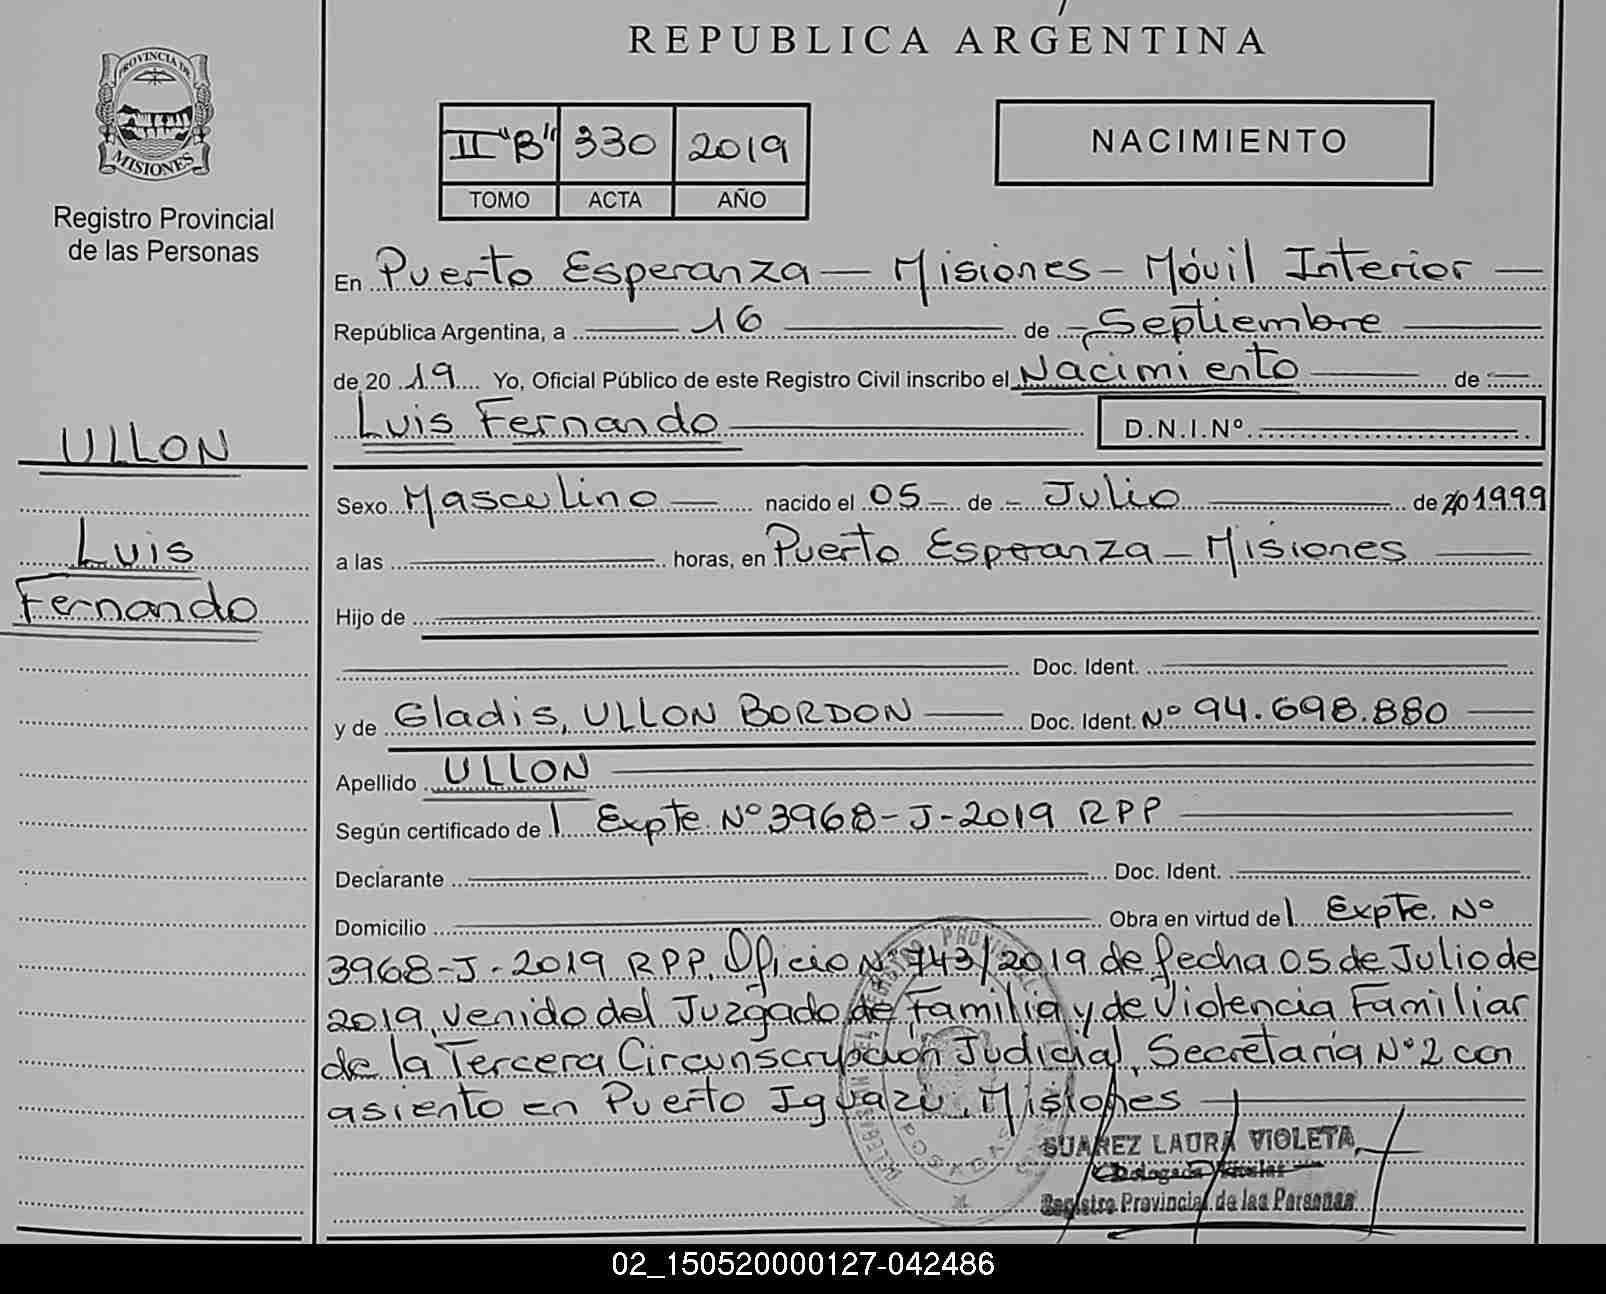 REPUBLICA ARGENTINA
PROVINCIA DE
MISIONES
Registro Provincial
de las Personas
II "B" 330 2019
TOMO ACTA AÑO
NACIMIENTO
En Puerto Esperanza — Misiones - Móvil Interior —
República Argentina, a 16 de Septiembre
de 2019 Yo, Oficial Público de este Registro Civil inscribo el Nacimiento de
Luis Fernando D.N.I.Nº
ULLON
Luis
Fernando
Sexo Masculino nacido el 05 de Julio de 20 1999
a las horas, en Puerto Esperanza - Misiones
Hijo de
Doc. Ident.
y de Gladis, ULLON BORDON Doc. Ident. Nº 94.698.880
Apellido ULLON
Según certificado de | Expte. Nº 3968-J-2019 RPP
Declarante Doc. Ident.
Domicilio Obra en virtud de | Expte. Nº
3968-J-2019 RPP, Oficio Nº 743/2019 de fecha 05 de Julio de
2019, venido del Juzgado de Familia y de Violencia Familiar
de la Tercera Circunscripción Judicial, Secretaria Nº 2 con
asiento en Puerto Iguazú, Misiones
SUAREZ LAURA VIOLETA
Delegada Titular
Registro Provincial de las Personas
02_150520000127-042486